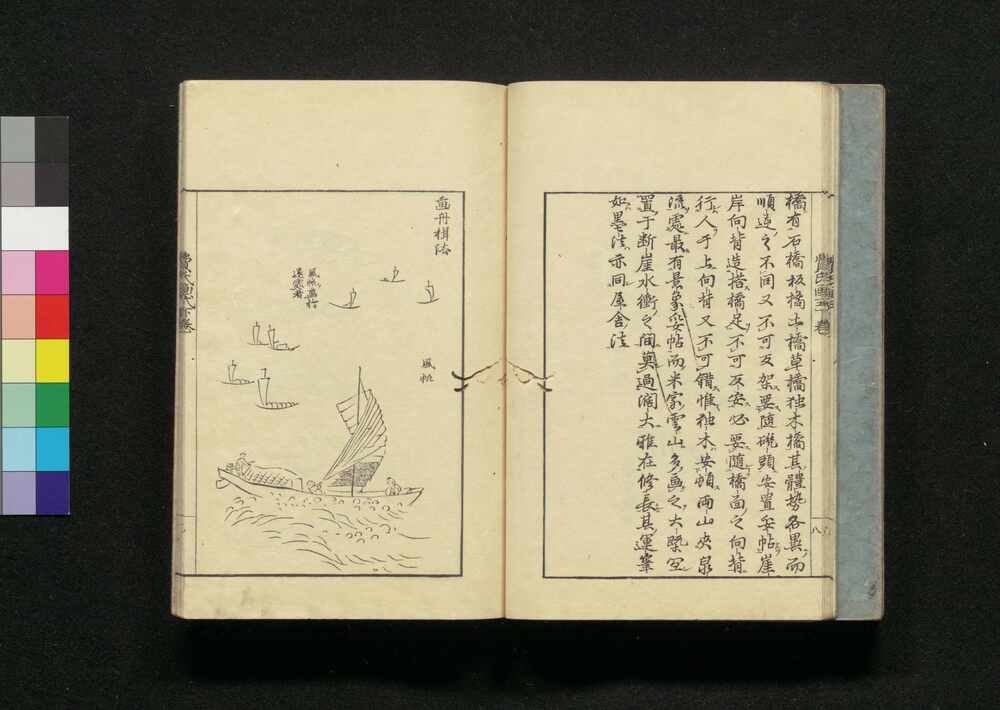 橋有石橋板橋土橋草橋独木橋其體勢各異而
順逆之不同又不可反架要隨磽頭安置妥帖崖
岸向背造搭橋足不可反安必要隨橋面之向背
行人于上向背又不可錯惟独木安頓両山夾泉
流處最有景象妥帖而米家雲山多画之大槩宜
置于断崖水衝之間莫過濶大雅在修長其運筆
如墨法亦同屋舎法
畫舟楫法
風帆
風帆
遠
者